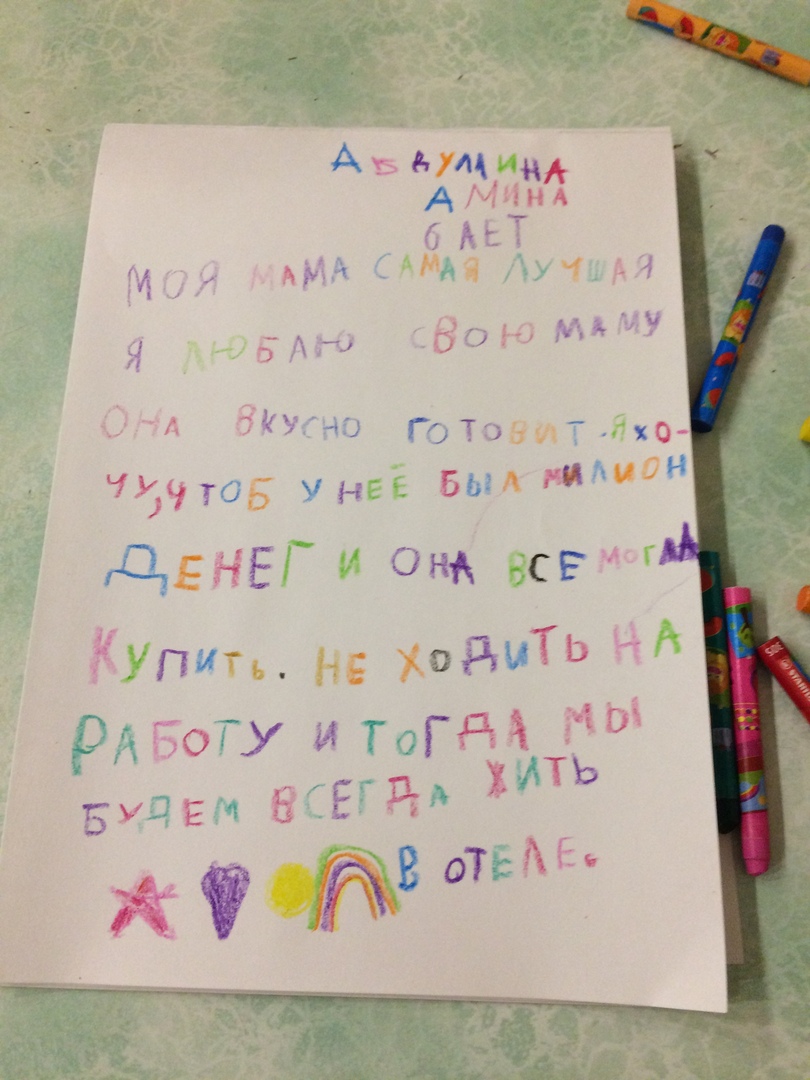 Абдулина
Амина
6 лет
МОЯ МАМА САМАЯ ЛУЧШАЯ
Я ЛЮБЛЮ СВОЮ МАМУ
ОНА ВКУСНО ГОТОВИТ. Я ХО-
ЧУ, ЧТОБ У НЕЁ БЫЛ МИЛИОН
ДЕНЕГ И ОНА ВСЕ МОГЛА
КУПИТЬ. НЕ ХОДИТЬ НА
РАБОТУ И ТОГДА МЫ
БУДЕМ ВСЕГДА ЖИТЬ
В ОТЕЛЕ.